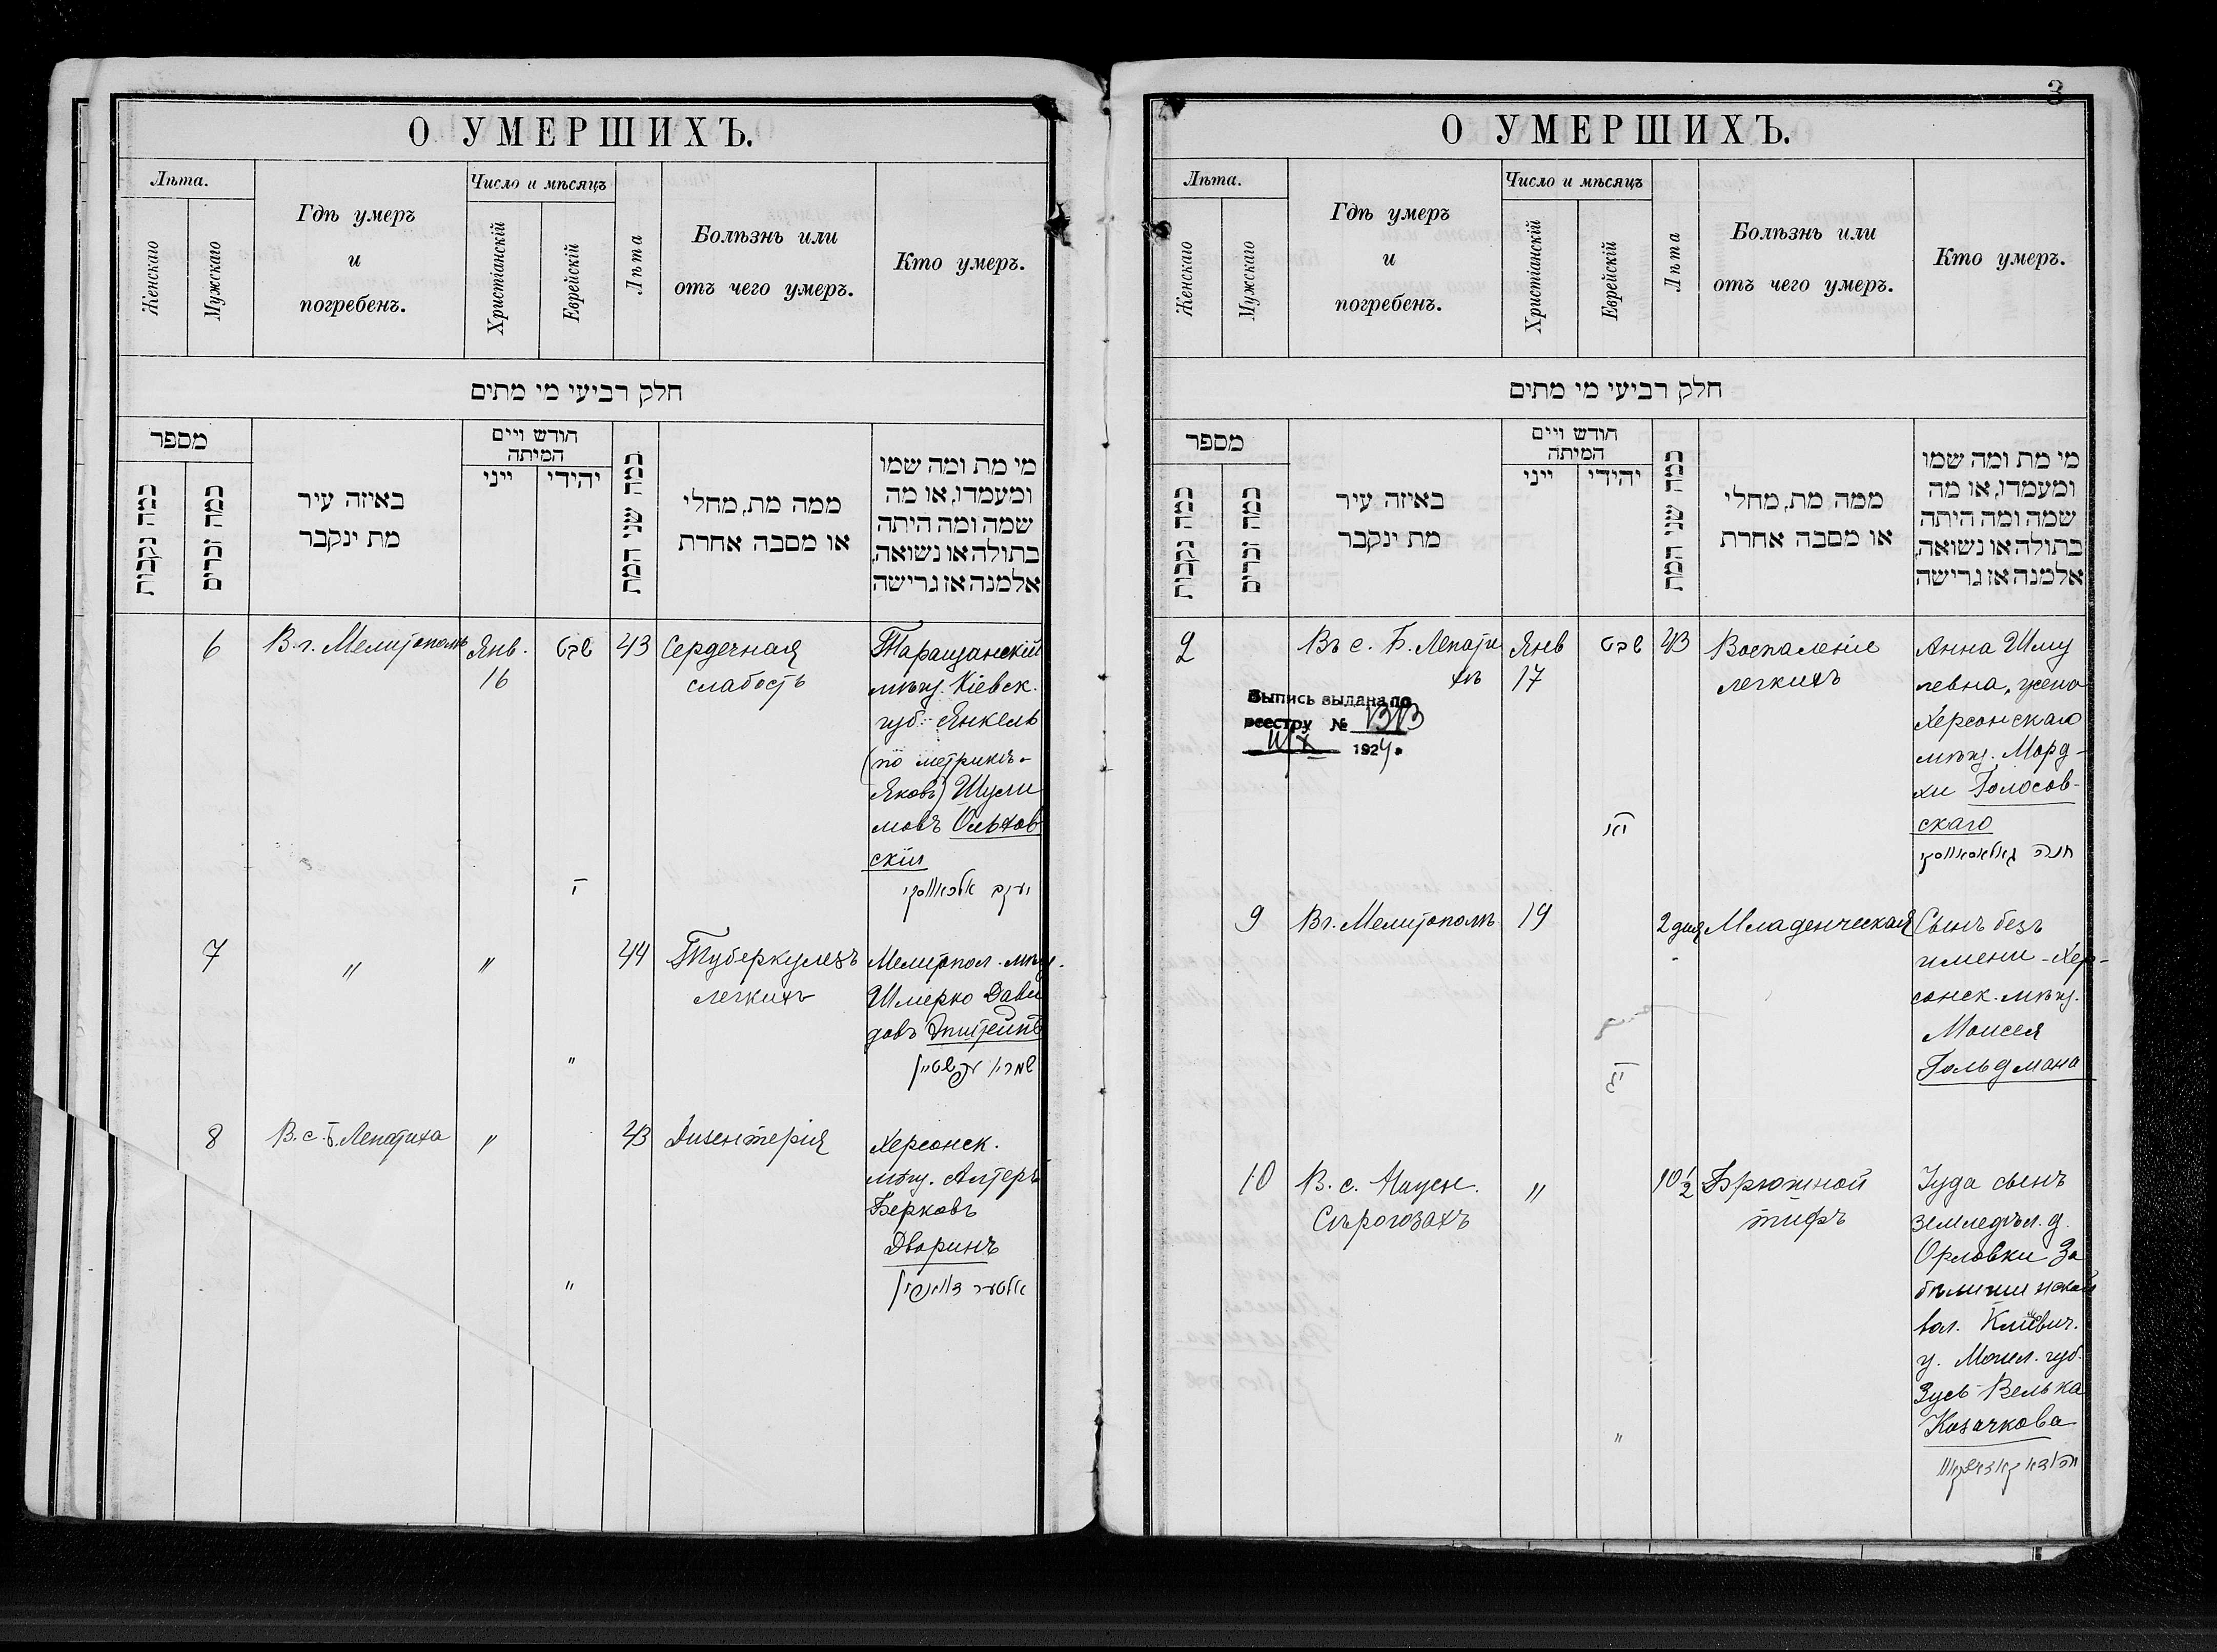 О УМЕРШИХЪ.
Лѣта.
Женскаго
Мужскаго
Гдѣ умеръ
и
погребенъ.
Число и мѣсяцъ
Христіанскій
Еврейскій
Лѣта
Болѣзнь или
отъ чего умеръ.
Кто умеръ.
חלק רביעי מי מתים
מספר
כמה נקבות
כמה זכרים
באיזה עיר
מת ינקבר
חודש ויים
המיתה
ייני
יהידי
כמה שני המת
ממה מת, מחלי
או מסבה אחרת
מי מת ומה שמו
ומעמדו, או מה
שמה ומה היתה
בתולה או נשואה,
אלמנה אז גרישה
6
В г. Мелитополѣ
Янв.
16
שבט
43
Сердечная
слабость
Таращанскій
мѣщ. Кіевск.
губ. Янкель
(по метрикѣ-
Яковъ) Шули
мовъ Ольхов-
скій
י
יעקב אלכאווסקי
7
"
"
"
44
Туберкулезъ
легкихъ
Мелитопол. мѣщ.
Шмерко Дави
довъ Эпштейнъ
8
В. с. Б. Лепатиха
"
"
43
Дизентерія
Херсонск.
мѣщ. Алтеръ
Берковъ
Дворинъ
3
О УМЕРШИХЪ.
Лѣта.
Женскаго
Мужскаго
Гдѣ умеръ
и
погребенъ.
Число и мѣсяцъ
Христіанскій
Еврейскій
Лѣта
Болѣзнь или
отъ чего умеръ.
Кто умеръ.
חלק רביעי מי מתים
מספר
כמה נקבות
כמה זכרים
באיזה עיר
מת ינקבר
חודש ויים
המיתה
ייני
יהידי
כמה שני המת
ממה מת, מחלי
או מסבה אחרת
מי מת ומה שמו
ומעמדו, או מה
שמה ומה היתה
בתולה או נשואה,
אלמנה אז גרישה
2
Въ с. Б. Лепати
хѣ
Янв
17
שבט
יא
43
Воспаленіе
легкихъ
Анна Шму
левна, жена
Херсонскаго
мѣщ. Морд-
хи Голосов-
скаго
חנה
Выпись выдана по
реестру №
1924.
9
В г. Мелитополѣ
19
יג
2 дня
Младенческая
Сынъ безъ
имени - Хер-
сонск. мѣщ.
Моисея
Гольдмана
10
В. с.
Сѣрогозахъ
"
"
10½
Брюшной
тифъ
Іуда сынъ
земледѣл. д.
Орловки За
бѣлишинской
вол. Климович.
у. Могил. губ.
Зусь-Велька
Козачкова